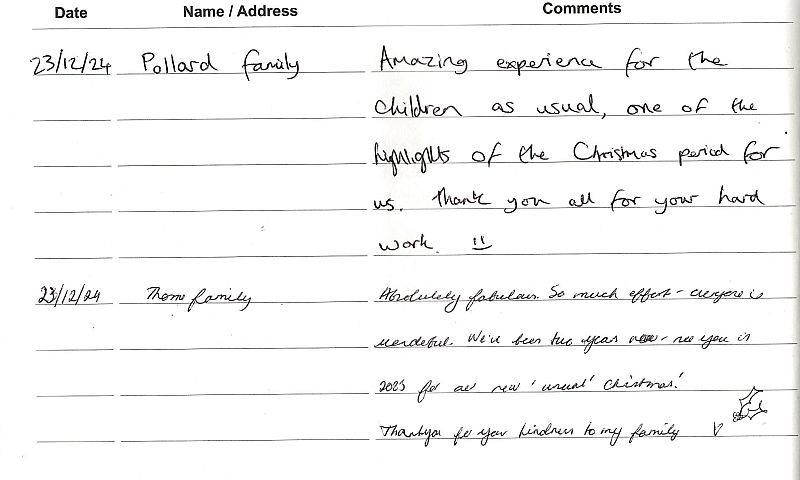 Date Name / Address Comments
23/12/24 Pollard family Amazing experience for the
children as usual, one of the
highlights of the Christmas period for
us. Thank you all for your hard
work.
23/12/24 Thorne family Absolutely fabulous. So much effort - everyone is
wonderful. We've been two years now - see you in
2025 for our new 'usual' Christmas!
Thankyou for your kindness to my family